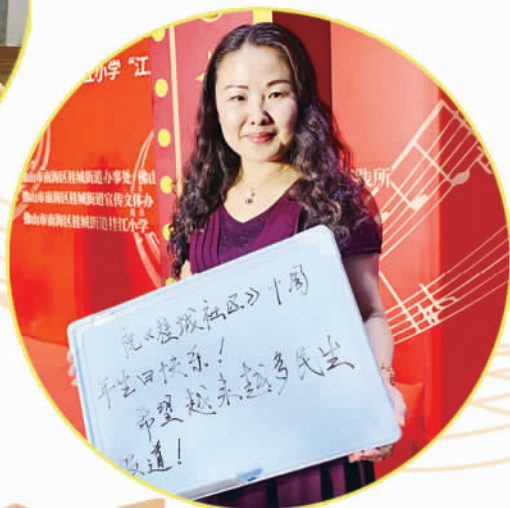 小学“江
佛山市南海区桂城街道办事处 佛山
佛山市南海区桂城街道宣传文体办
佛山市南海区桂城街道桂江小学
所
祝《桂城社区》十周
年生日快乐！
希望越来越多民生
报道！